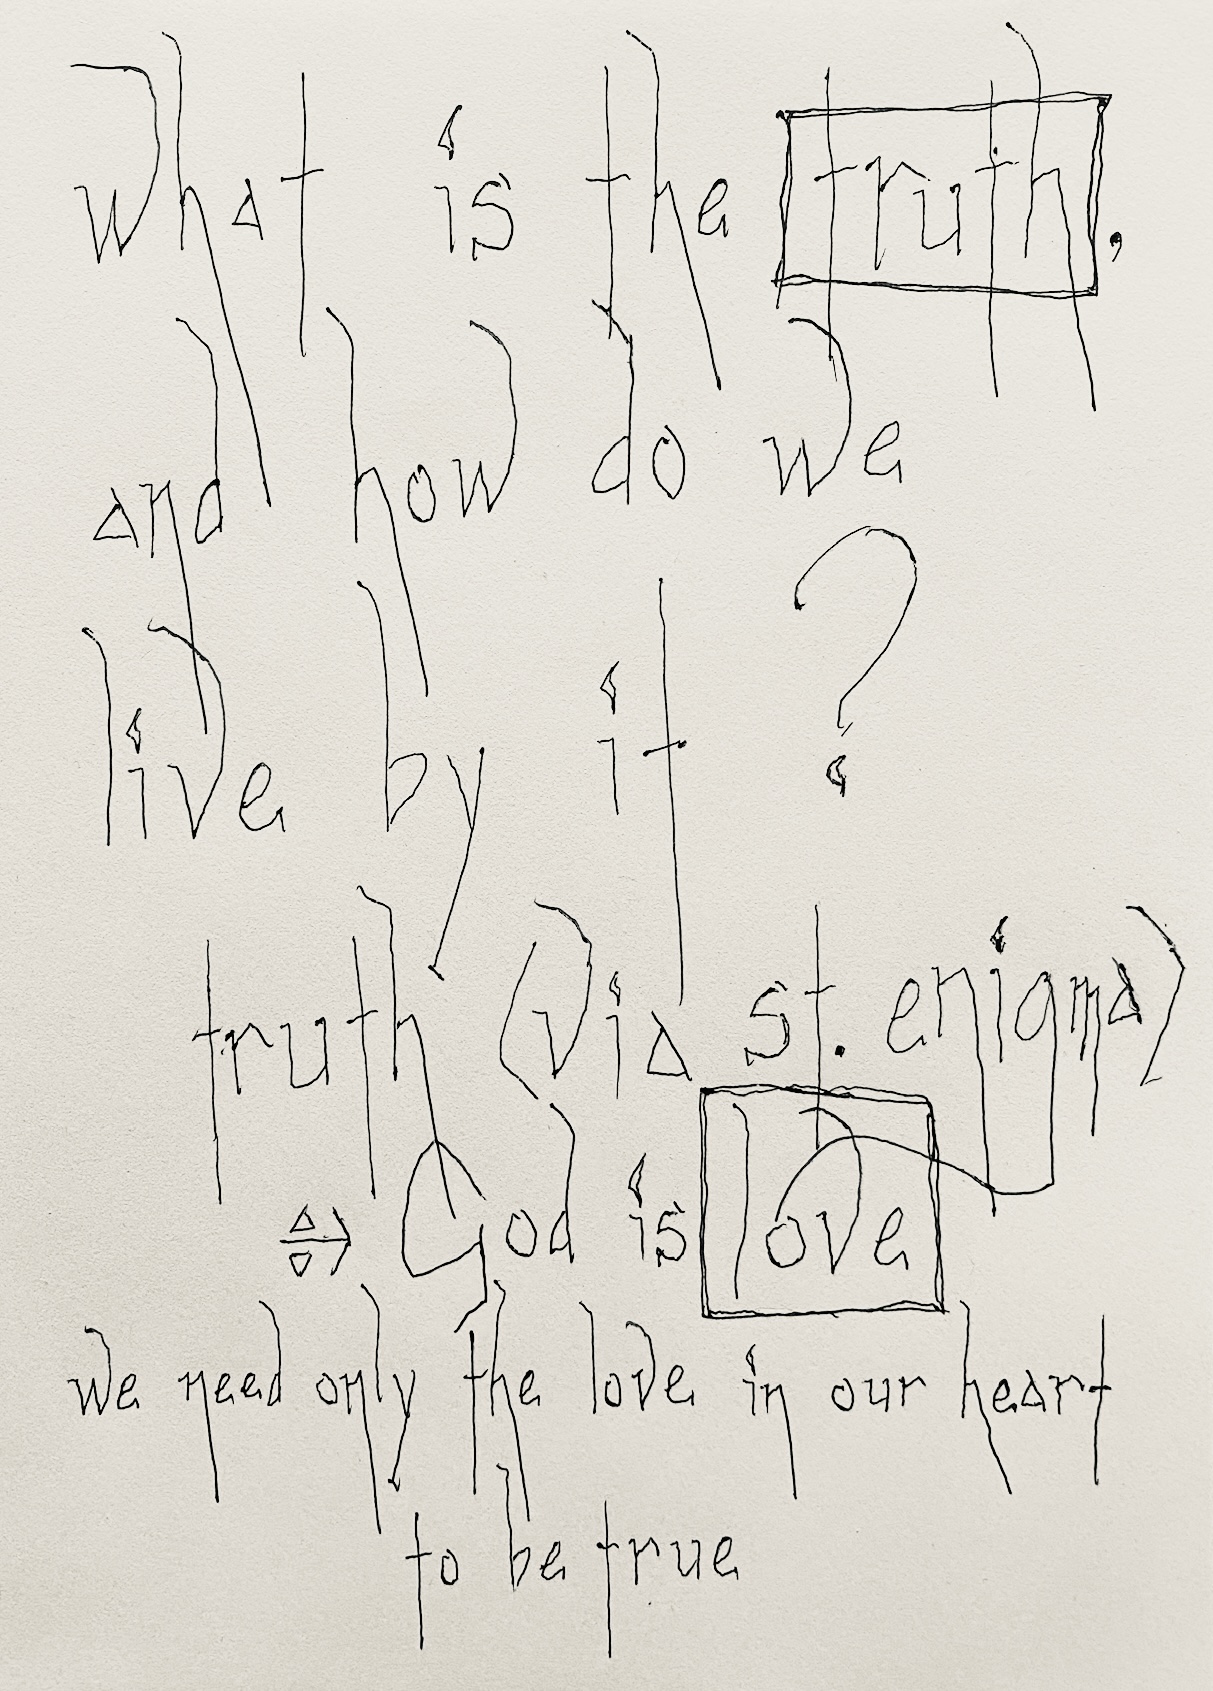 what is the truth,
and how do we
live by it ?
truth (via st. enigma)
God is love
we need only the love in our heart
to be true